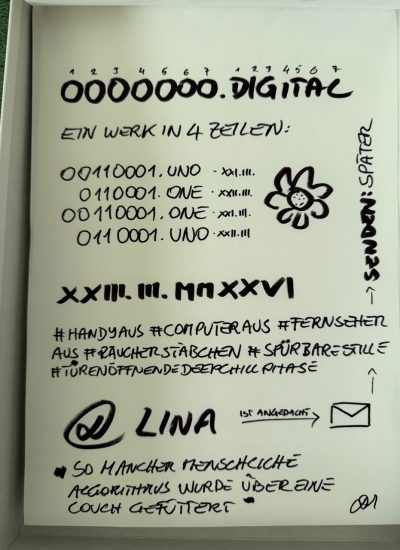 1 2 3 4 5 6 7 1 2 3 4 5 6 7
0000000.DIGITAL
EIN WERK IN 4 ZEILEN:
00110001.UNO -XXI.III.
0110001.ONE -XXII.III.
00110001.ONE -XXI.III.
0110001.UNO -XXII.III.
XXIII.III.MMXXVI
#HANDYAUS #COMPUTERAUS #FERNSEHER
AUS #RÄUCHERSTÄBCHEN #SPÜRBARESTILLE
#TÜRENÖFFNENDEDEEPCHILLPHASE
@LINA IST ANGEDACHT
"SO MANCHER MENSCHLICHE
ALGORITHMUS WURDE ÜBER EINE
COUCH GEFÜTTERT"
SENDEN: SPÄTER